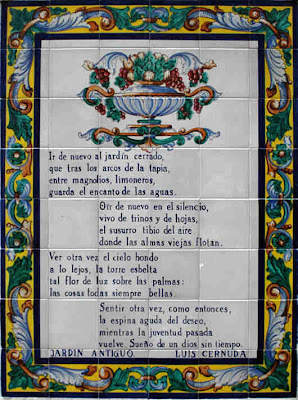 Ir de nuevo al jardín cerrado,
que tras los arcos de la tapia,
entre magnolios, limoneros,
guarda el encanto de las aguas.
Oír de nuevo en el silencio,
vivo de trinos y de hojas,
el susurro tibio del aire
donde las almas viejas flotan.
Ver otra vez el cielo hondo
a lo lejos, la torre esbelta
tal flor de luz sobre las palmas:
las cosas todas siempre bellas.
Sentir otra vez, como entonces,
la espina aguda del deseo,
mientras la juventud pasada
vuelve. Sueño de un dios sin tiempo.
JARDIN ANTIGUO LUIS CERNUDA